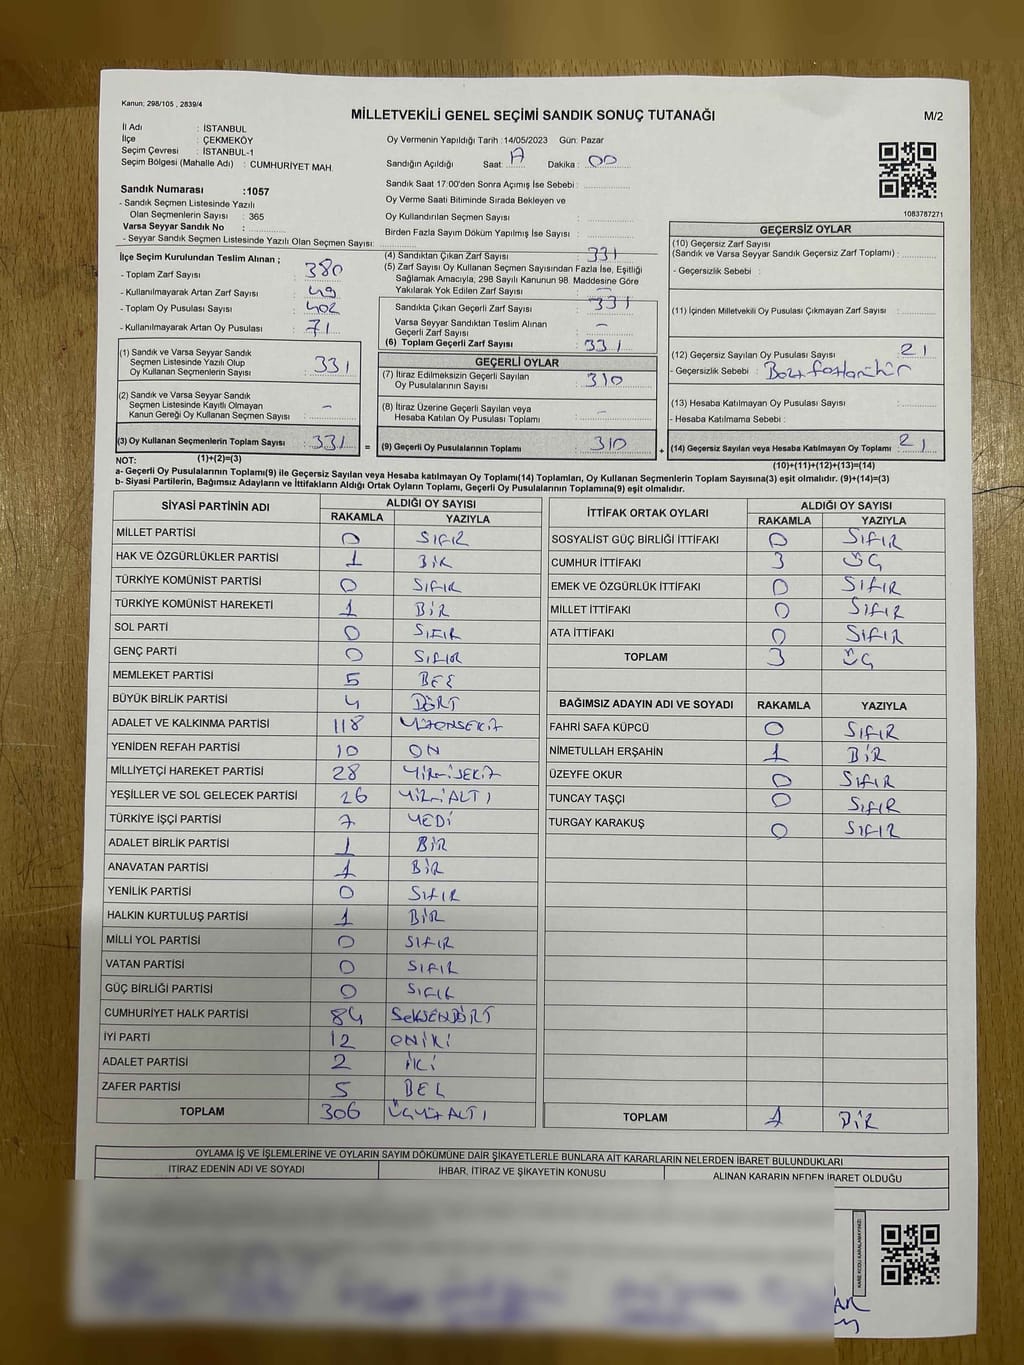 Kanun; 298/105 , 2839/4
MİLLETVEKİLİ GENEL SEÇİMİ SANDIK SONUÇ TUTANAĞI
M/2
İl Adı : İSTANBUL
İlçe : ÇEKMEKÖY
Seçim Çevresi : İSTANBUL-1
Seçim Bölgesi (Mahalle Adı) : CUMHURİYET MAH.
Oy Vermenin Yapıldığı Tarih :14/05/2023 Gün: Pazar
Sandığın Açıldığı Saat: Dakika : 00
Sandık Saat 17:00'den Sonra Açımış İse Sebebi :
Oy Verme Saati Bitiminde Sırada Bekleyen ve
Oy Kullandırılan Seçmen Sayısı :
Birden Fazla Sayım Döküm Yapılmış İse Sayısı :
1083787271
Sandık Numarası :1057
- Sandık Seçmen Listesinde Yazılı
Olan Seçmenlerin Sayısı : 365
Varsa Seyyar Sandık No :
- Seyyar Sandık Seçmen Listesinde Yazılı Olan Seçmen Sayısı:
İlçe Seçim Kurulundan Teslim Alınan ;
- Toplam Zarf Sayısı : 380
- Kullanılmayarak Artan Zarf Sayısı : 49
- Toplam Oy Pusulası Sayısı : 402
- Kullanılmayarak Artan Oy Pusulası : 71
(1) Sandık ve Varsa Seyyar Sandık
Seçmen Listesinde Yazılı Olup
Oy Kullanan Seçmenlerin Sayısı : 331
(2) Sandık ve Varsa Seyyar Sandık
Seçmen Listesinde Kayıtlı Olmayan
Kanun Gereği Oy Kullanan Seçmen Sayısı : -
(3) Oy Kullanan Seçmenlerin Toplam Sayısı : 331 =
(4) Sandıktan Çıkan Zarf Sayısı : 331
(5) Zarf Sayısı Oy Kullanan Seçmen Sayısından Fazla İse, Eşitliği
Sağlamak Amacıyla, 298 Sayılı Kanunun 98. Maddesine Göre
Yakılarak Yok Edilen Zarf Sayısı : -
Sandıkta Çıkan Geçerli Zarf Sayısı : 331
Varsa Seyyar Sandıktan Teslim Alınan
Geçerli Zarf Sayısı : -
(6) Toplam Geçerli Zarf Sayısı : 331
GEÇERLİ OYLAR
(7) İtiraz Edilmeksizin Geçerli Sayılan
Oy Pusulalarının Sayısı : 310
(8) İtiraz Üzerine Geçerli Sayılan veya
Hesaba Katılan Oy Pusulası Toplamı : -
(9) Geçerli Oy Pusulalarının Toplamı : 310 +
GEÇERSİZ OYLAR
(10) Geçersiz Zarf Sayısı
(Sandık ve Varsa Seyyar Sandık Geçersiz Zarf Toplamı) :
- Geçersizlik Sebebi :
(11) İçinden Milletvekili Oy Pusulası Çıkmayan Zarf Sayısı :
(12) Geçersiz Sayılan Oy Pusulası Sayısı : 21
- Geçersizlik Sebebi :
(13) Hesaba Katılmayan Oy Pusulası Sayısı :
- Hesaba Katılmama Sebebi :
(14) Geçersiz Sayılan veya Hesaba Katılmayan Oy Toplamı : 21
NOT: (1)+(2)=(3)
(10)+(11)+(12)+(13)=(14)
a- Geçerli Oy Pusulalarının Toplamı(9) ile Geçersiz Sayılan veya Hesaba katılmayan Oy Toplamı(14) Toplamları, Oy Kullanan Seçmenlerin Toplam Sayısına(3) eşit olmalıdır. (9)+(14)=(3)
b- Siyasi Partilerin, Bağımsız Adayların ve İttifakların Aldığı Ortak Oyların Toplamı, Geçerli Oy Pusulalarının Toplamına(9) eşit olmalıdır.
SİYASİ PARTİNİN ADI ALDIĞI OY SAYISI
RAKAMLA YAZIYLA
MİLLET PARTİSİ 0 SIFIR
HAK VE ÖZGÜRLÜKLER PARTİSİ 1 BİR
TÜRKİYE KOMÜNİST PARTİSİ 0 SIFIR
TÜRKİYE KOMÜNİST HAREKETİ 1 BİR
SOL PARTİ 0 SIFIR
GENÇ PARTİ 0 SIFIR
MEMLEKET PARTİSİ 5 BEŞ
BÜYÜK BİRLİK PARTİSİ 4 DÖRT
ADALET VE KALKINMA PARTİSİ 118 YÜZONSEKİZ
YENİDEN REFAH PARTİSİ 10 ON
MİLLİYETÇİ HAREKET PARTİSİ 28 YİRMİSEKİZ
YEŞİLLER VE SOL GELECEK PARTİSİ 26 YİRMİALTI
TÜRKİYE İŞÇİ PARTİSİ 7 YEDİ
ADALET BİRLİK PARTİSİ 1 BİR
ANAVATAN PARTİSİ 1 BİR
YENİLİK PARTİSİ 0 SIFIR
HALKIN KURTULUŞ PARTİSİ 1 BİR
MİLLİ YOL PARTİSİ 0 SIFIR
VATAN PARTİSİ 0 SIFIR
GÜÇ BİRLİĞİ PARTİSİ 0 SIFIR
CUMHURİYET HALK PARTİSİ 84 SEKSENDÖRT
İYİ PARTİ 12 ONİKİ
ADALET PARTİSİ 2 İKİ
ZAFER PARTİSİ 5 BEŞ
TOPLAM 306 ÜÇYÜZALTI
İTTİFAK ORTAK OYLARI ALDIĞI OY SAYISI
RAKAMLA YAZIYLA
SOSYALİST GÜÇ BİRLİĞİ İTTİFAKI 0 SIFIR
CUMHUR İTTİFAKI 3 ÜÇ
EMEK VE ÖZGÜRLÜK İTTİFAKI 0 SIFIR
MİLLET İTTİFAKI 0 SIFIR
ATA İTTİFAKI 0 SIFIR
TOPLAM 3 ÜÇ
BAĞIMSIZ ADAYIN ADI VE SOYADI RAKAMLA YAZIYLA
FAHRİ SAFA KÜPCÜ 0 SIFIR
NİMETULLAH ERŞAHİN 1 BİR
ÜZEYFE OKUR 0 SIFIR
TUNCAY TAŞÇI 0 SIFIR
TURGAY KARAKUŞ 0 SIFIR
TOPLAM 1 BİR
OYLAMA İŞ VE İŞLEMLERİNE VE OYLARIN SAYIM DÖKÜMÜNE DAİR ŞİKAYETLERLE BUNLARA AİT KARARLARIN NELERDEN İBARET BULUNDUKLARI
İTİRAZ EDENİN ADI VE SOYADI İHBAR, İTİRAZ VE ŞİKAYETİN KONUSU ALINAN KARARIN NEDEN İBARET OLDUĞU
KARE KODU KARALAMAYINIZ!